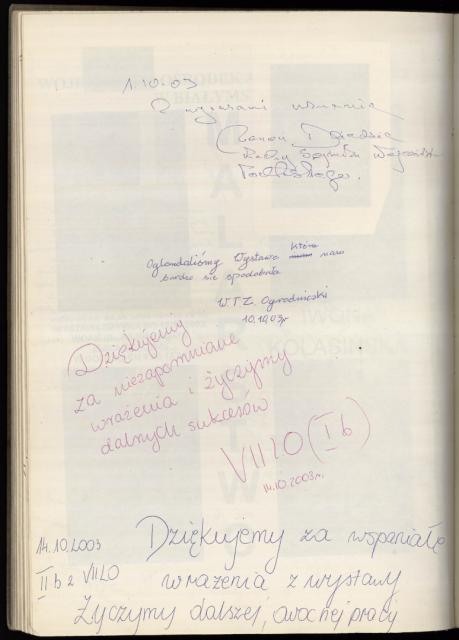 1.10.03
Z wyrazami uznania
Radny Sejmiku Województwa
Podlaskiego.
Oglondaliśmy Wystawe która nam
bardzo sie spodobała
WTZ. Ogrodniczki
10.10.03r
Dziękujemy
za niezapomniane
wrażenia i życzymy
dalnych sukcesów
VII LO (I b)
14.10.2003r.
14.10.2003
II b z VII LO
Dziękujemy za wspaniałe
wrażenia z wystawy
Życzymy dalszej, owocnej pracy